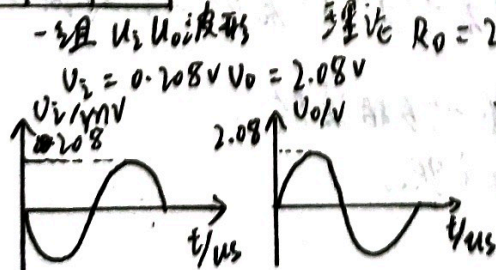 一组 Ui Uo波形 理论 Ro = 2
Ui = 0.208V Uo = 2.08V
Ui/mV
208
2.08
Uo/V
t/us
t/us